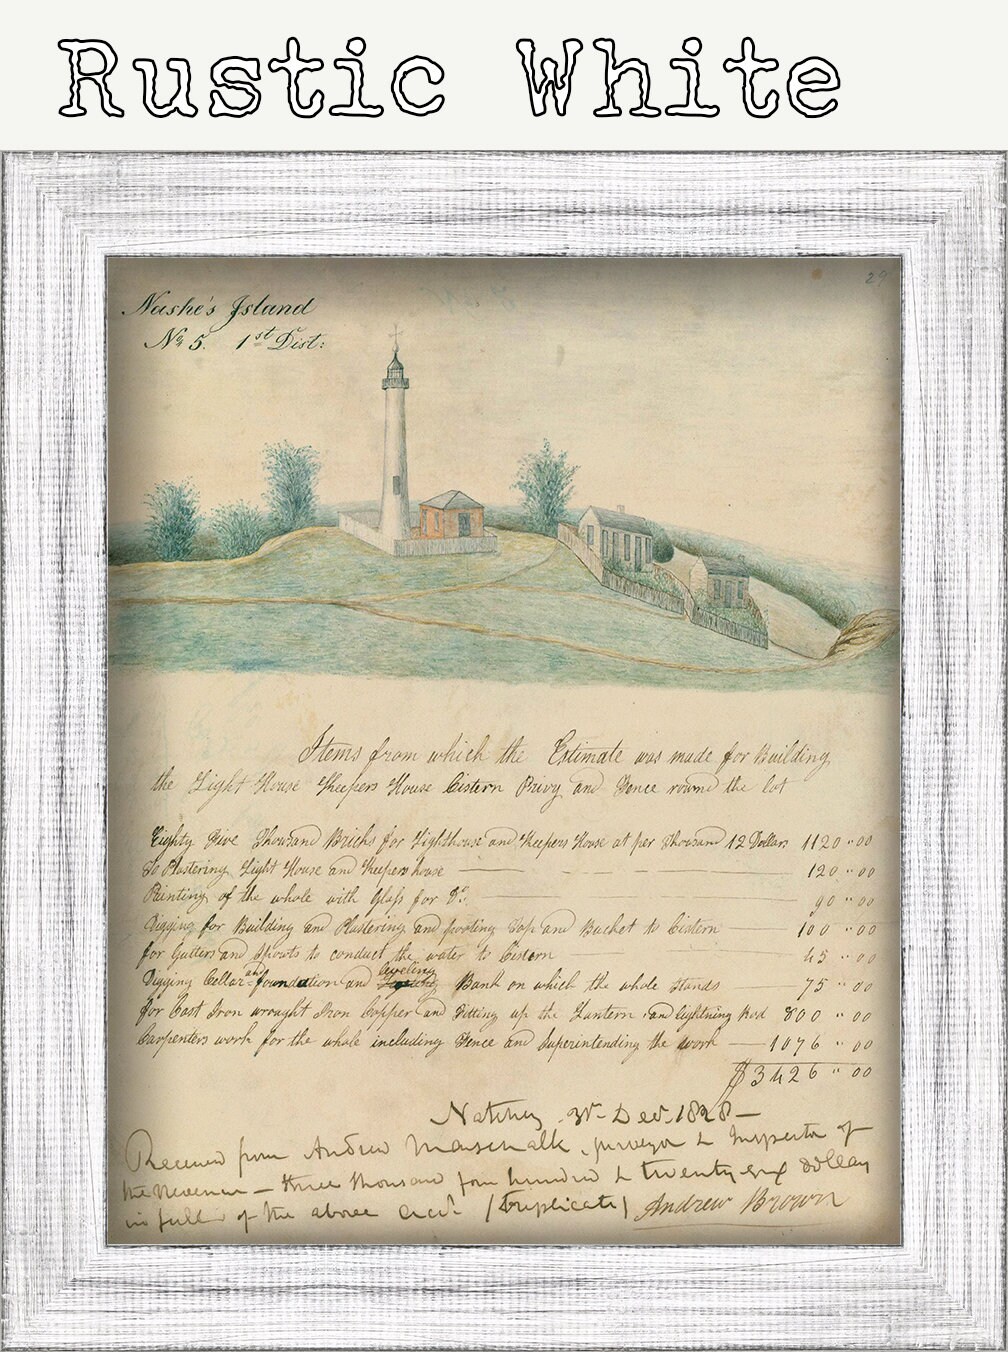 Rustic White
29
Nashe's Island
No 5. 1st Dist:
Items from which the Estimate was made for Building
the Light House Keepers House Cistern Privy and Fence round the lot
Eighty Five Thousand Bricks for Lighthouse and Keepers House at per Thousand 12 Dollars 1120 " 00
To Plastering Light House and Keepers house 120 " 00
Painting of the whole with Glass for Do. 90 " 00
Digging for Building and Plastering and porting Top and Bucket to Cistern 100 " 00
for Gutters and Spouts to conduct the water to Cistern 45 " 00
Digging Cellar and foundation and leveling Bank on which the whole stands 75 " 00
for Cast Iron wrought Iron Copper and Fitting up the Lantern and lightning Rod 800 " 00
Carpenters work for the whole including Fence and Superintending the work 1076 " 00
$3426 " 00
Natchez 31st Decr. 1828
Received from Andrew Marschalk, surveyor & Inspector of
the Revenue — three thousand four hundred & twenty six dollars
in full of the above acct (Triplicate) Andrew Brown